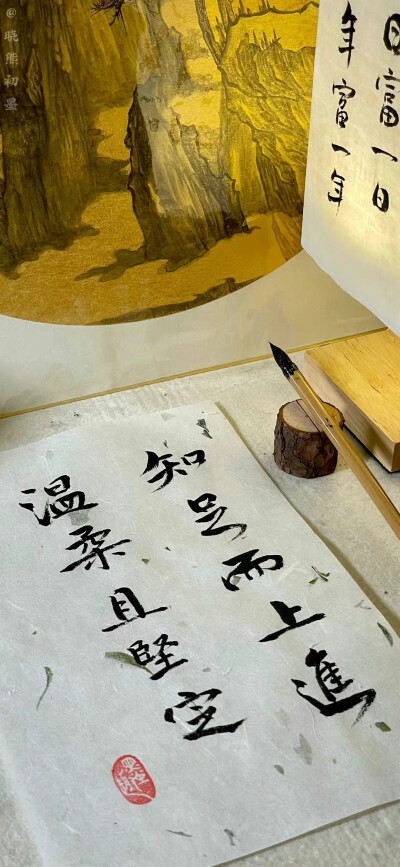 @晓熊初墨
日富一日
年富一年
知足而上進
温柔且堅定